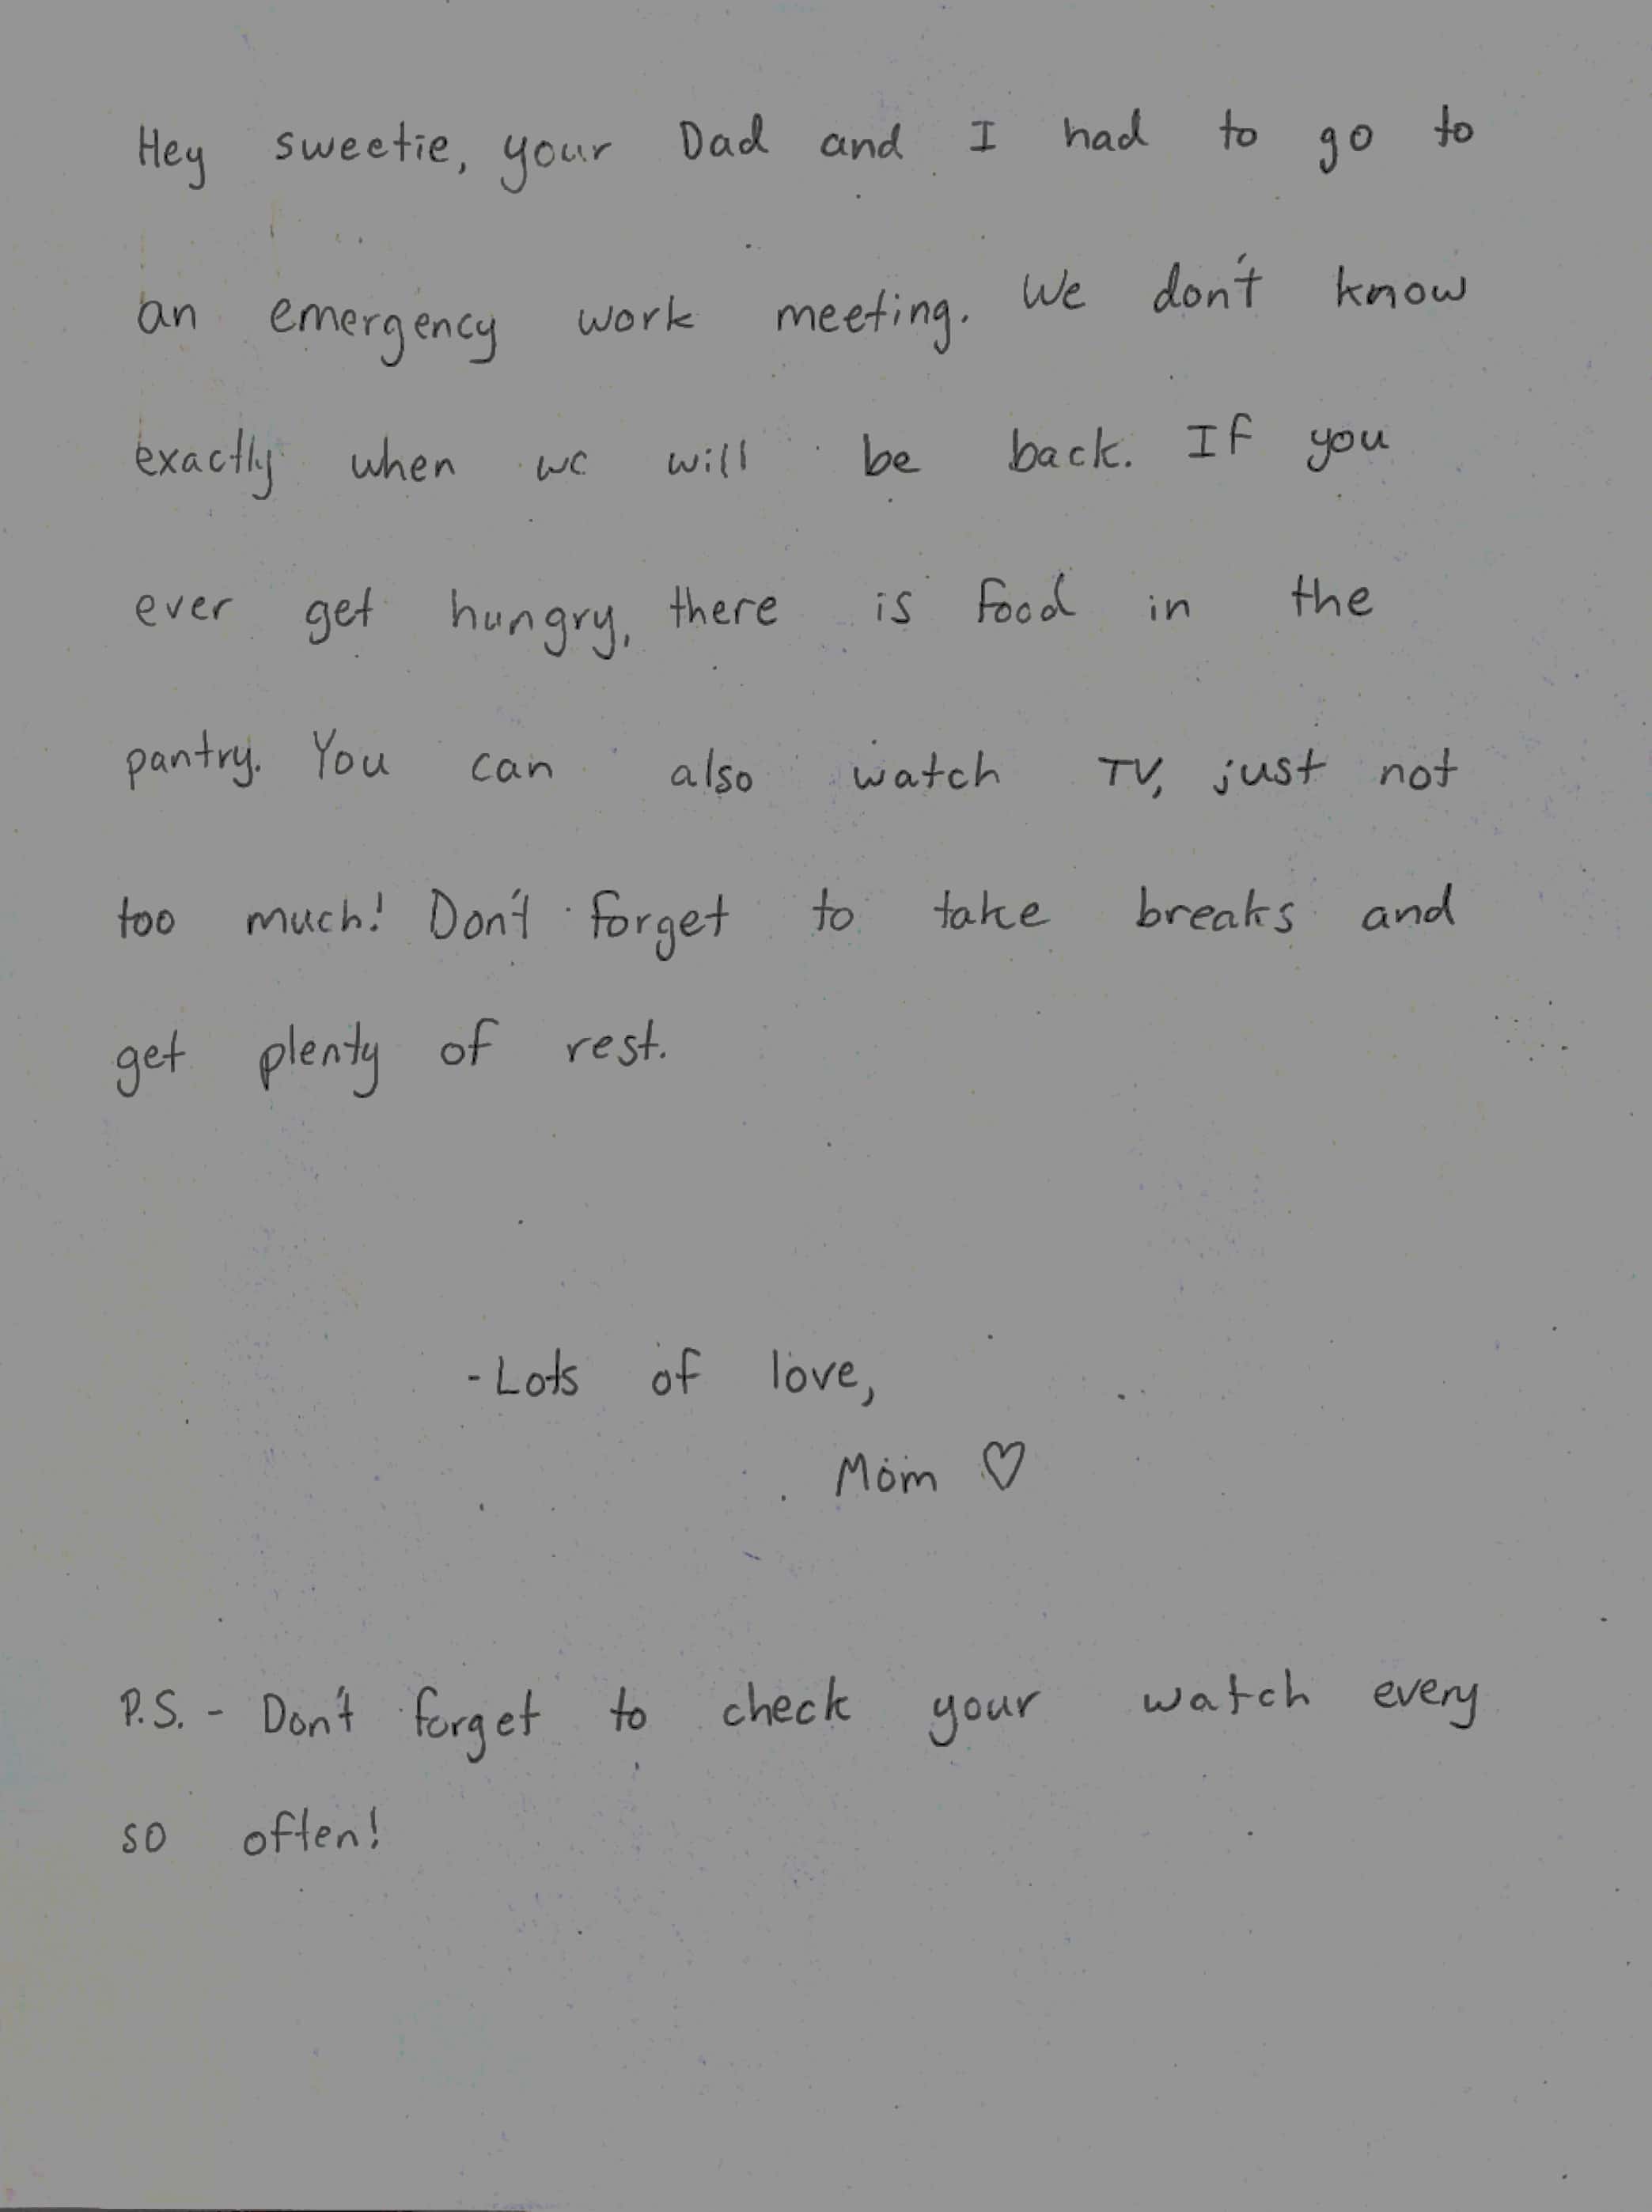 Hey sweetie, your Dad and I had to go to
an emergency work meeting. We don't know
exactly when we will be back. If you
ever get hungry, there is food in the
pantry. You can also watch TV, just not
too much! Don't forget to take breaks and
get plenty of rest.
-Lots of love,
Mom ♡
P.S. - Don't forget to check your watch every
so often!